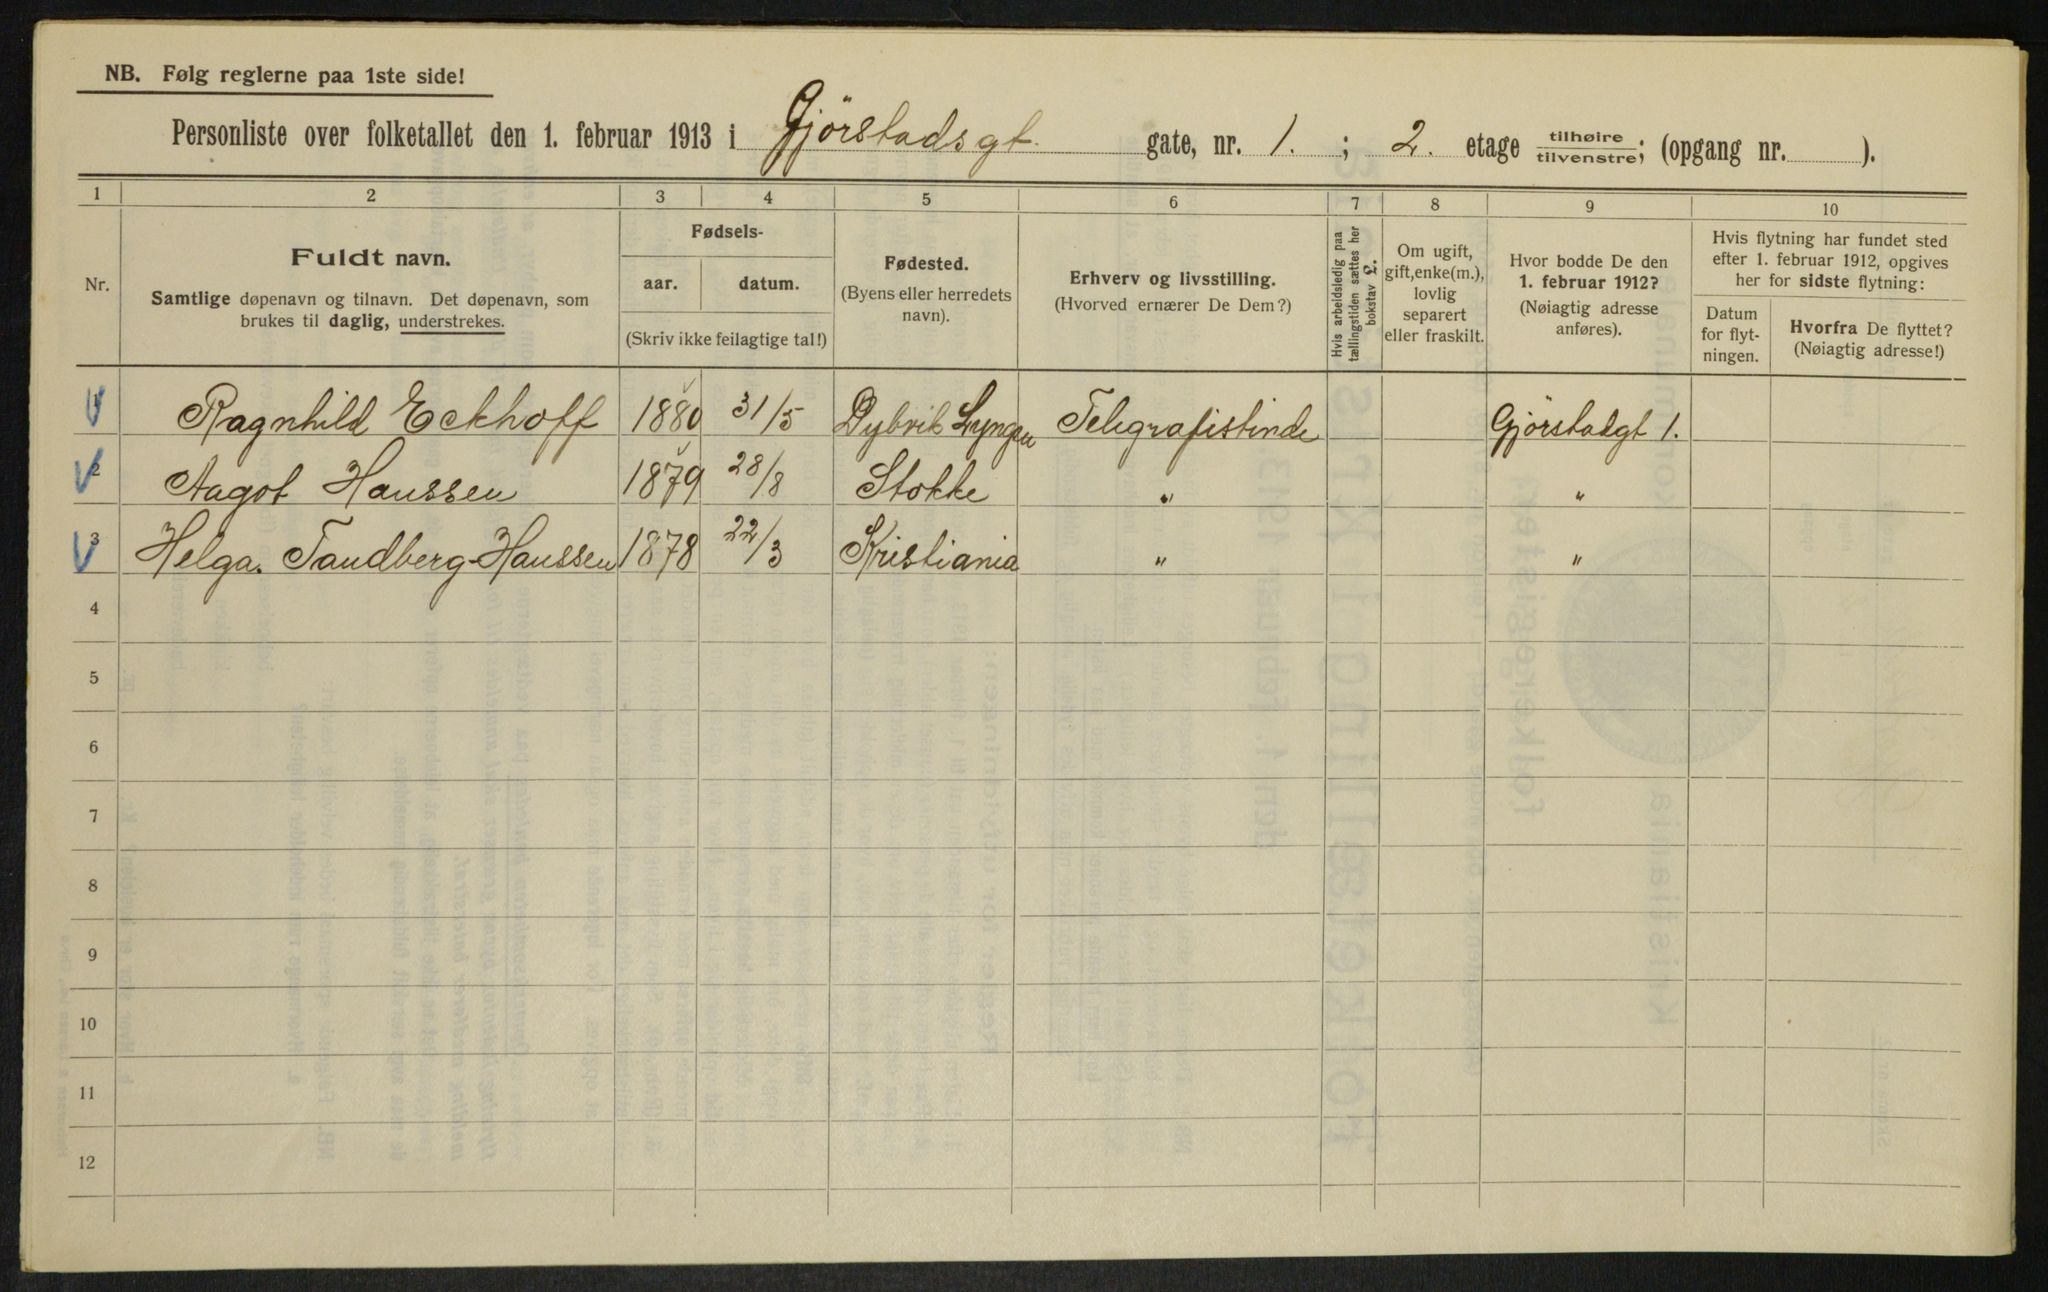 NB. Følg reglerne paa 1ste side!
Personliste over folketallet den 1. februar 1913 i Gjörstadsgt. gate, nr. 1. ; 2. etage tilhøire/tilvenstre; (opgang nr. ).
1 2 3 4 5 6 7 8 9 10
Nr.
Fuldt navn.
Samtlige døpenavn og tilnavn. Det døpenavn, som
brukes til daglig, understrekes.
Fødsels-
aar. datum.
(Skriv ikke feilagtige tal!)
Fødested.
(Byens eller herredets
navn).
Erhverv og livsstilling.
(Hvorved ernærer De Dem?)
Hvis arbeidsledig paa
tællingstiden sættes her
bokstav L.
Om ugift,
gift, enke(m.),
lovlig
separert
eller fraskilt.
Hvor bodde De den
1. februar 1912?
(Nøiagtig adresse
anføres).
Hvis flytning har fundet sted
efter 1. februar 1912, opgives
her for sidste flytning:
Datum
for flyt-
ningen.
Hvorfra De flyttet?
(Nøiagtig adresse!)
1 Ragnhild Eckhoff 1880 31/5 Dybvik Lyngen Telegrafistinde Gjörstadgt 1.
2 Aagot Hanssen 1879 28/8 Stokke " "
3 Helga Tandberg-Hanssen 1878 22/3 Kristiania " "
4
5
6
7
8
9
10
11
12